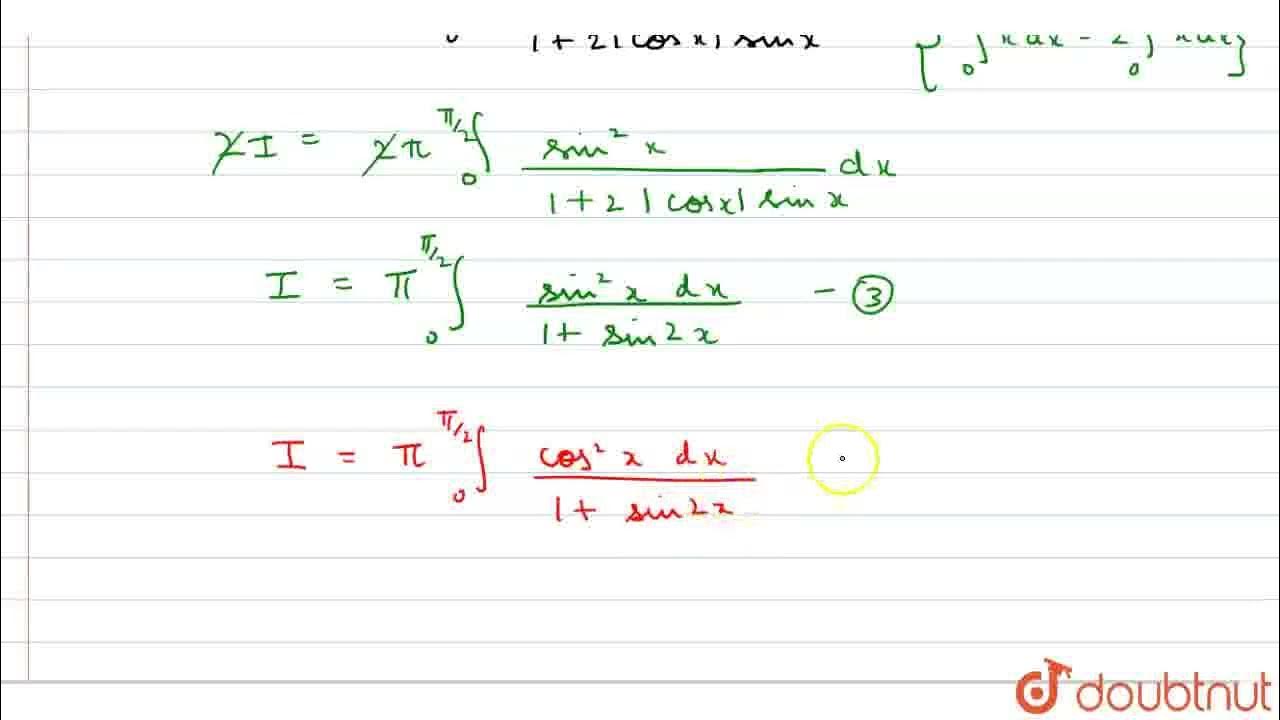 0 1+2|cosx| sinx { 0∫ x dx = 2 0∫ x dx }
2I = 2π 0∫π/2 sin² x / 1+2 |cosx| sin x dx
I = π 0∫π/2 sin² x dx / 1+ sin2x - ③
I = π 0∫π/2 cos² x dx / 1+ sin2x
doubtnut